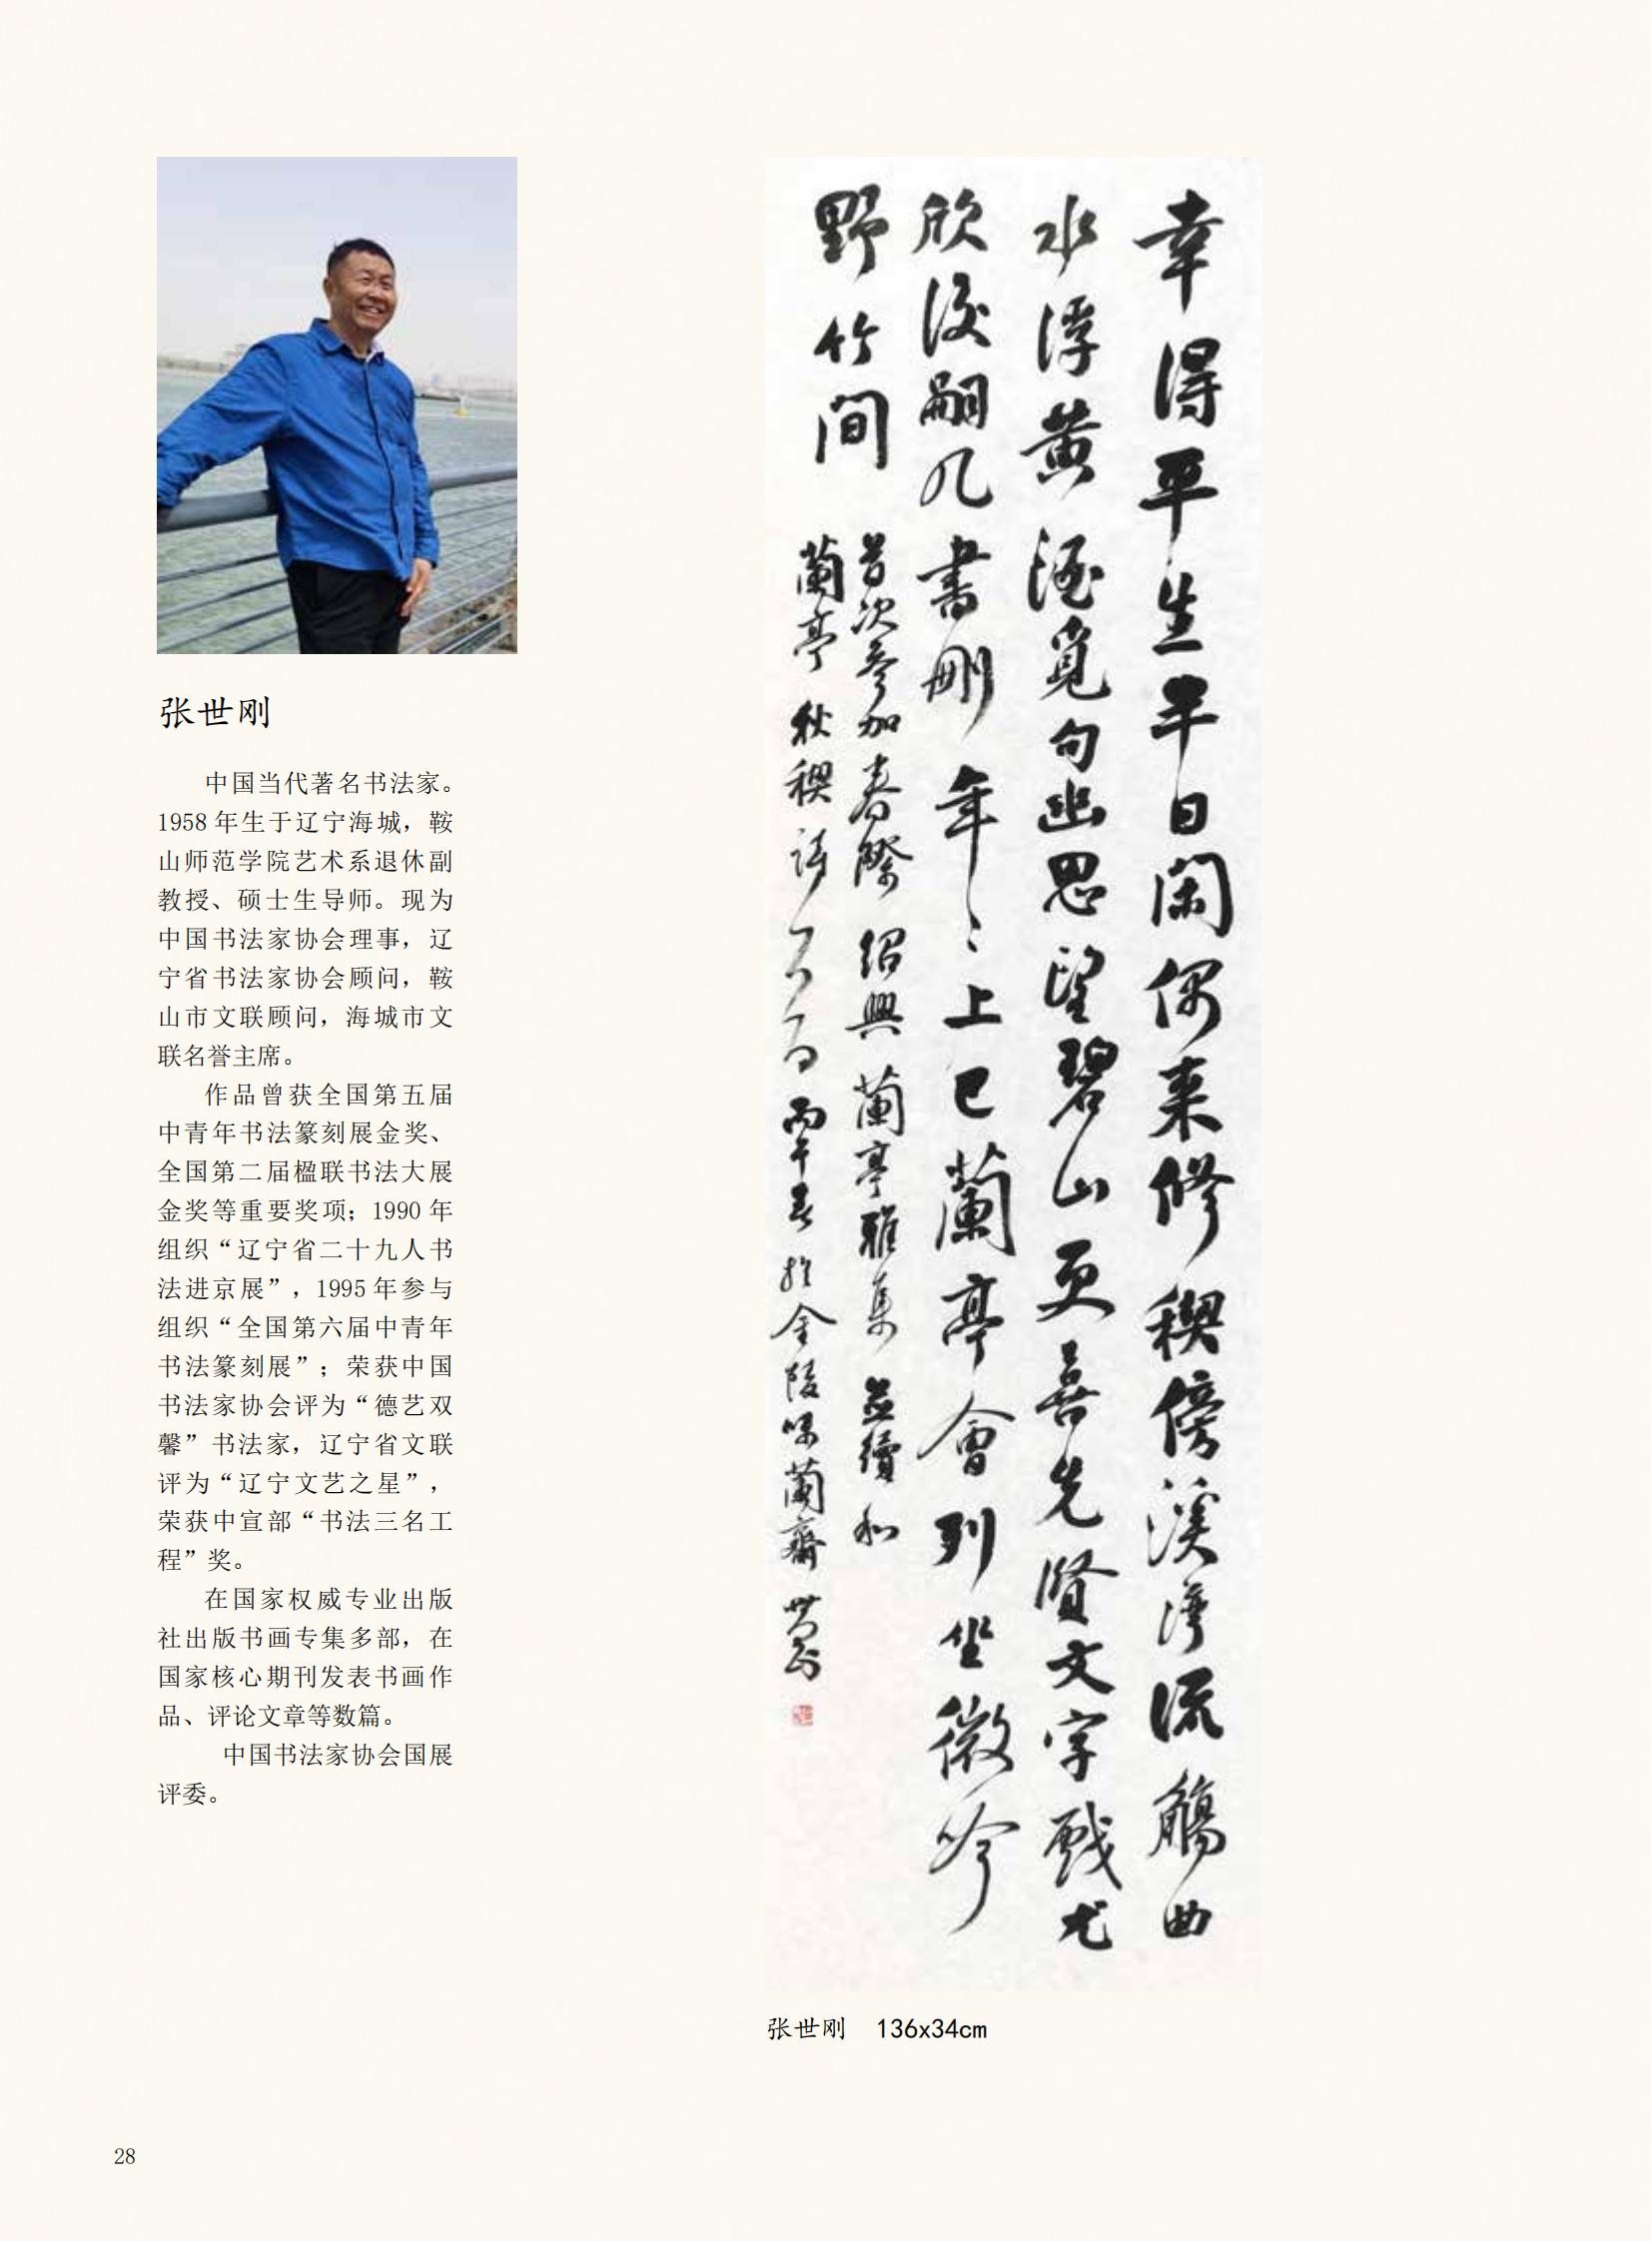 张世刚
中国当代著名书法家。
1958年生于辽宁海城，鞍
山师范学院艺术系退休副
教授、硕士生导师。现为
中国书法家协会理事，辽
宁省书法家协会顾问，鞍
山市文联顾问，海城市文
联名誉主席。
作品曾获全国第五届
中青年书法篆刻展金奖、
全国第二届楹联书法大展
金奖等重要奖项；1990年
组织“辽宁省二十九人书
法进京展”，1995年参与
组织“全国第六届中青年
书法篆刻展”；荣获中国
书法家协会评为“德艺双
馨”书法家，辽宁省文联
评为“辽宁文艺之星”，
荣获中宣部“书法三名工
程”奖。
在国家权威专业出版
社出版书画专集多部，在
国家核心期刊发表书画作
品、评论文章等数篇。
中国书法家协会国展
评委。
幸得平生半日閑偶来修禊傍溪湾流觴曲
水浮黄酒覓句幽思望碧山更喜先賢文字戲尤
欣後嗣几書刪年々上巳蘭亭會列坐微吟
野竹間
次参加春際紹興蘭亭雅集並續和
蘭亭秋禊詩丙午春於金陵味蘭齋世刚
张世刚 136x34cm
28